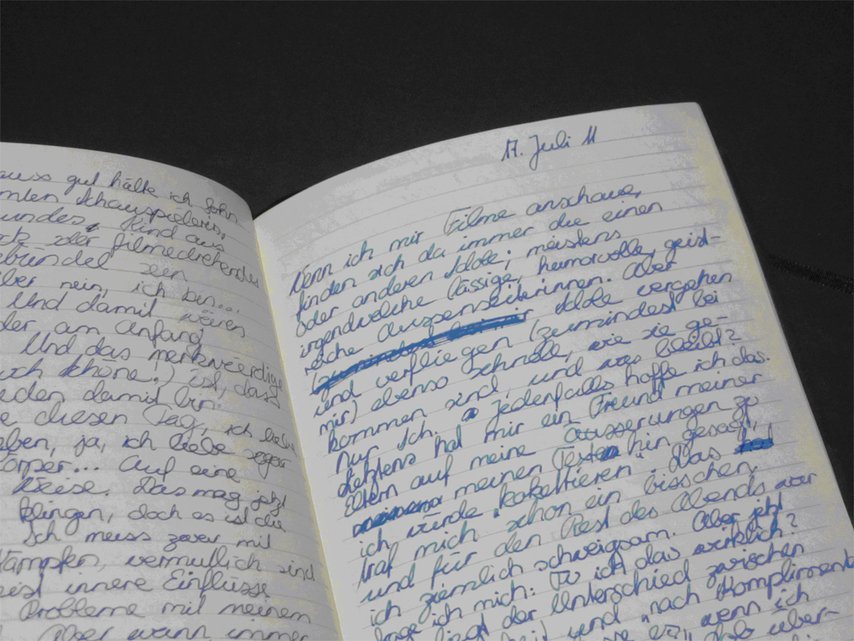 gut hätte ich
Schauspielerin,
Kind aus
filmedrehenden
sein
ber nein, ich bin...
Und damit wären
der am Anfang
Und das merkwürdige
schöne!) ist, dass
eden damit bin.
e diesen Tag, ich liebe
eben, ja, ich liebe sogar
örper... Auf eine
Weise. Das mag jetzt
klingen, doch es ist die
Ich muss zwar mit
kämpfen, vermutlich sind
eist innere Einflüsse
Probleme mit meinem
Aber wann immer
17. Juli 11
Wenn ich mir Filme anschaue,
finden sich da immer die einen
oder anderen Idole; meistens
irgendwelche lässige, humorvolle, geist-
reiche Aussenseiterinnen. Aber
Idole vergehen
und verfliegen (zumindest bei
mir) ebenso schnell, wie sie ge-
kommen sind, und was bleibt?
Nur Ich. Jedenfalls hoffe ich das.
Letztens hat mir ein Freund meiner
Eltern auf meine Äusserungen zu
meinen Texten hin gesagt,
ich würde kokettieren. Das
traf mich schon ein bisschen,
und für den Rest des Abends war
ich ziemlich schweigsam. Aber jetzt
frage ich mich: Tu ich das wirklich?
liegt der Unterschied zwischen
und "nach Komplimenten
wenn ich
über-